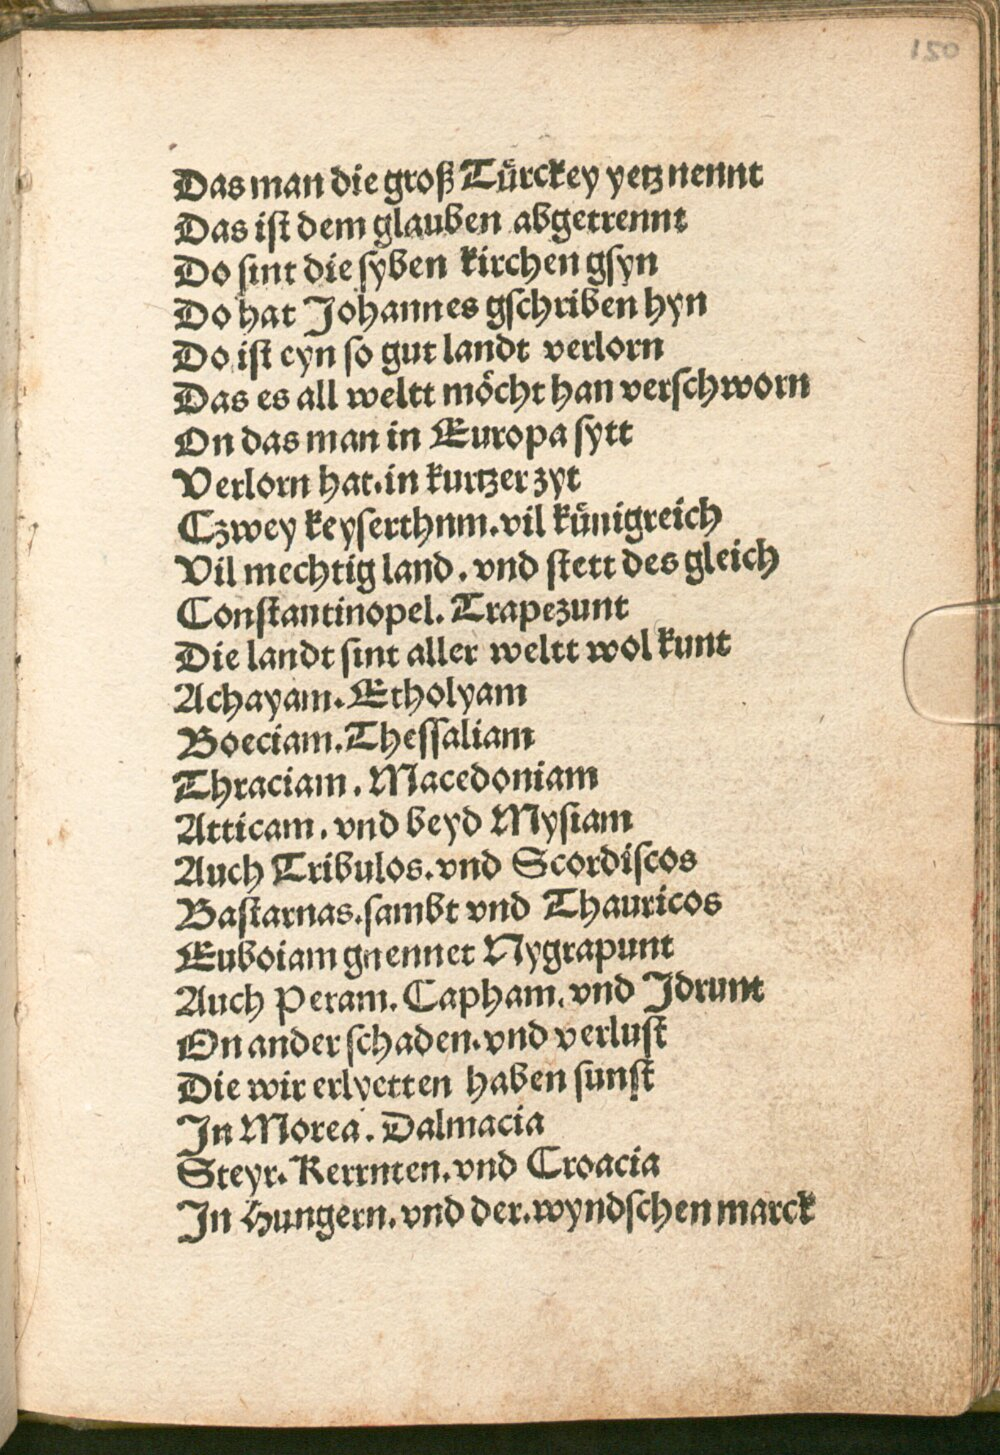 150
Das man die groß Tuͤrckey yetz nennt
Das iſt dem glauben abgetrennt
Do ſint die ſyben kirchen gſyn
Do hat Johannes gſchriben hyn
Do iſt eyn ſo gut landt verlorn
Das es all weltt moͤcht han verſchworn
On das man in Europa ſytt
Verlorn hat. in kurtzer zyt
Czwey keyſerthnm. vil kuͤnigreich
Vil mechtig land. vnd ſtett des gleich
Conſtantinopel. Trapezunt
Die landt ſint aller weltt wol kunt
Achayam. Etholyam
Boeciam. Theſſaliam
Thraciam. Macedoniam
Atticam. vnd beyd Myſiam
Auch Tribulos. vnd Scordiſcos
Baſtarnas. ſambt vnd Thauricos
Euboiam gnennet Nygrapunt
Auch Peram. Capham. vnd Jdrunt
On ander ſchaden. vnd verluſt
Die wir erlyetten haben ſunſt
Jn Morea. Dalmacia
Steyr. Kerrnten. vnd Croacia
Jn Hungern. vnd der. wyndſchen marck